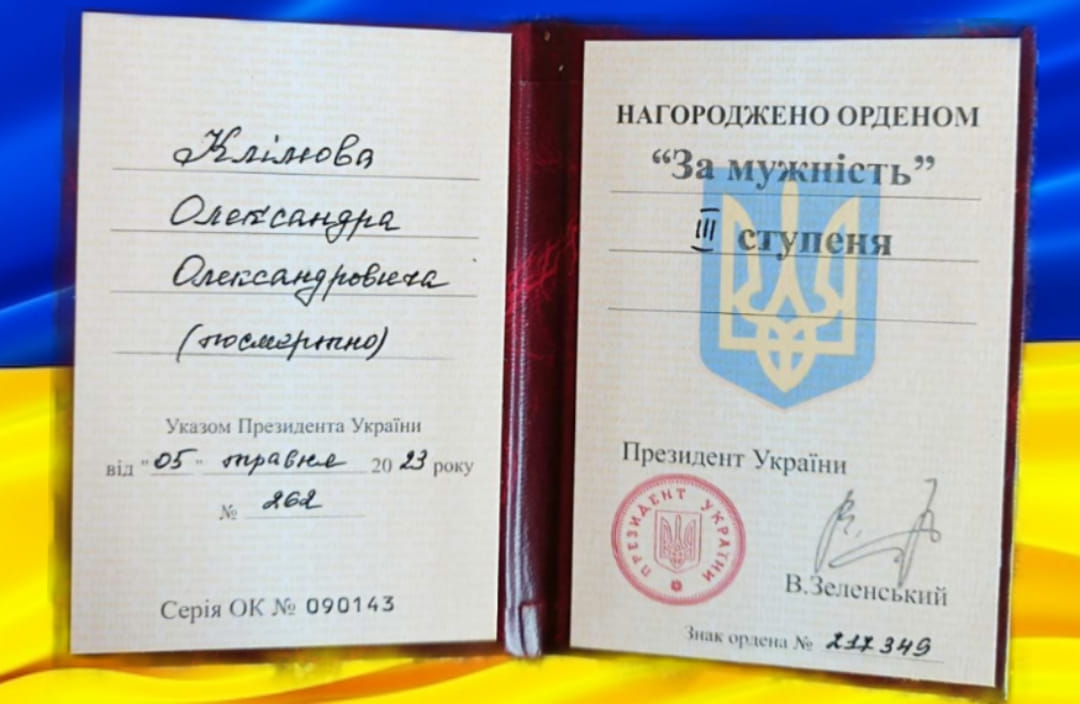 Клімова
Олександра
Олександровича
(посмертно)
Указом Президента України
від "05" травня 2023 року
№ 262
Серія ОК № 090143
НАГОРОДЖЕНО ОРДЕНОМ
“За мужність”
III ступеня
Президент України
ПРЕЗИДЕНТ УКРАЇНИ
В.Зеленський
Знак ордена № 217349